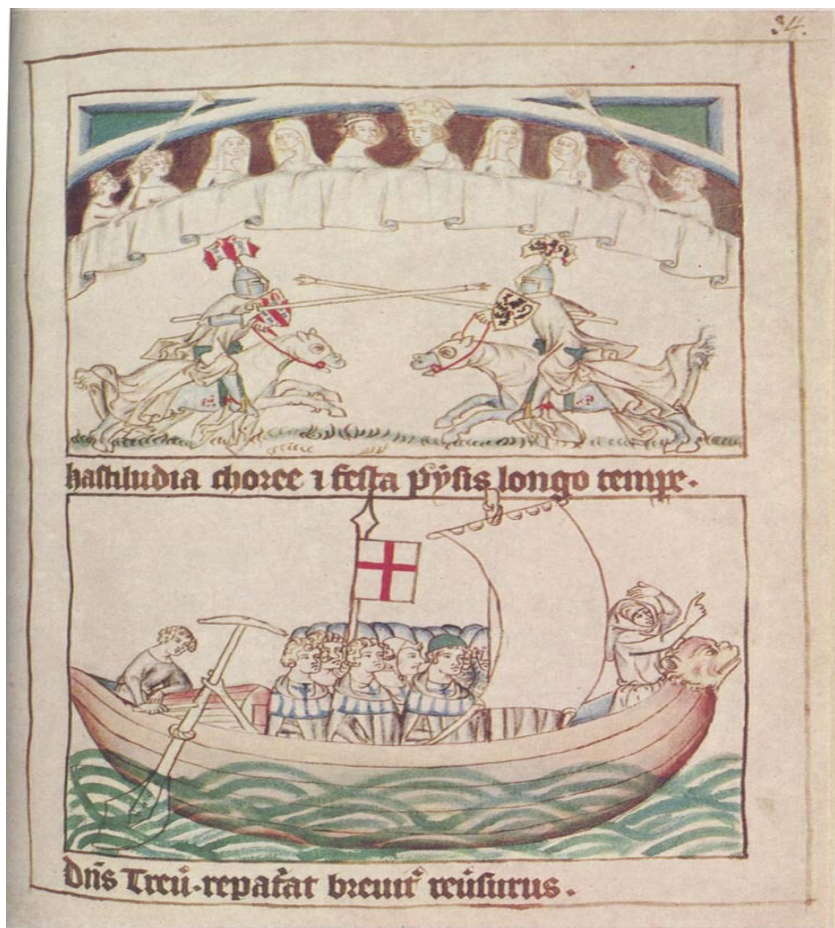 34.
hastiludia choree ⁊ festa pysis longo tempe.
dn̄s Treū. repar̄at breuit᷑ reūsurus.